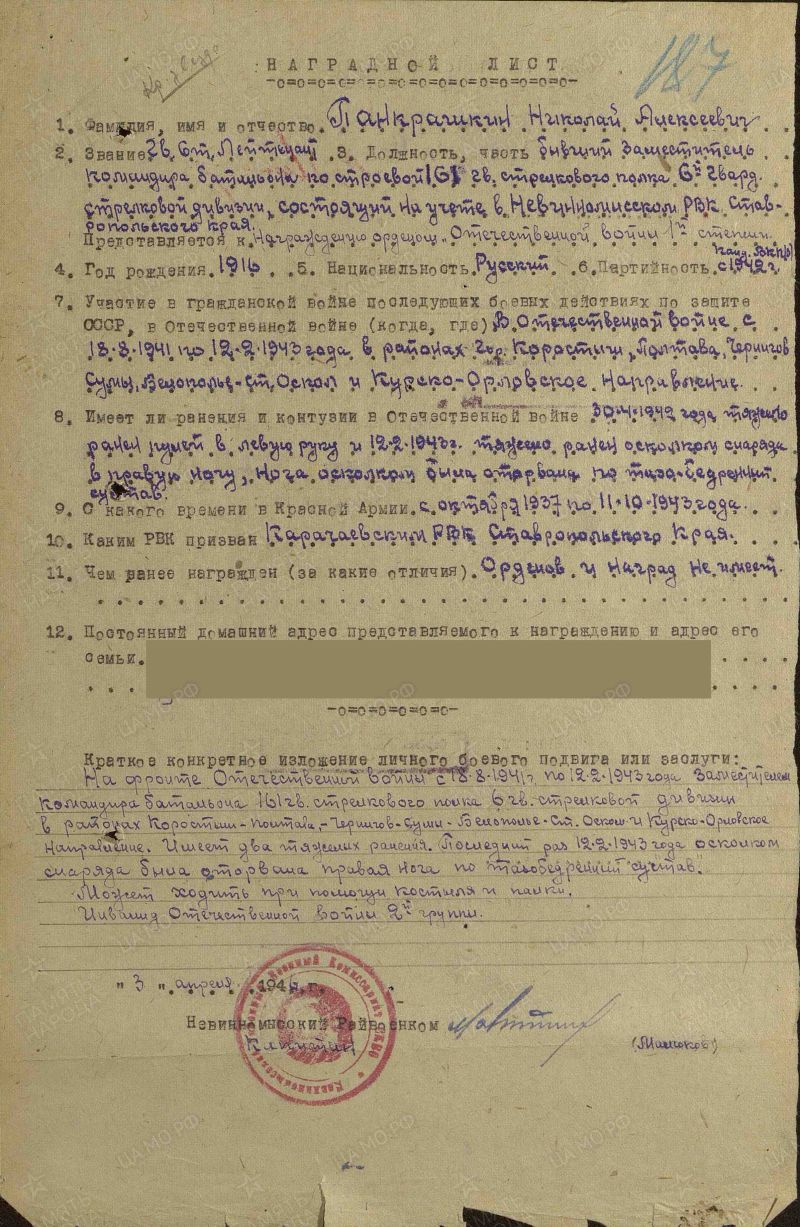 Кр. Звезда
187
НАГРАДНОЙ ЛИСТ
-о=о=о=о=о=о=о=о=о=о=о=о=о=о-
1. Фамилия, имя и отчество. Панкрашкин Николай Алексеевич
2. Звание Гв. Ст. Лейтенант. 3. Должность, часть бывший Заместитель
командира батальона по строевой 161 гв. стрелкового полка 6й Гвард.
стрелковой дивизии, состоящий на учете в Невинномысском РВК Став-
ропольского края.
Представляется к Награждению орденом „Отечественной войны 1й степени.
4. Год рождения. 1916. 5. Национальность. Русский. 6. Партийность. канд. ВКП(б) с 1942 г.
7. Участие в гражданской войне последующих боевых действиях по защите
СССР, в Отечественной войне (когда, где). В Отечественной войне с
18.8.1941 по 12.2.1943 года в районах гор. Коростиш, Полтава, Чернигов
Сумы, Белополье-ст. Оскол и Курско-Орловское Направление.
8. Имеет ли ранения и контузии в Отечественной войне 30.4.1942 года тяжело
ранен пулей в левую руку и 12.2.1943г. тяжело ранен осколком снаряда
в правую ногу, нога осколком была оторвана по тазо-бедренный
сустав.
9. С какого времени в Красной Армии. с октября 1937 по 11.10.1943 года.
10. Каким РВК призван Карачаевским РВК Ставропольского Края.
11. Чем ранее награжден (за какие отличия). Орденов и наград не имеет.
12. Постоянный домашний адрес представляемого к награждению и адрес его
семьи.
-о=о=о=о=о=о-
Краткое конкретное изложение личного боевого подвига или заслуги:
На фронте Отечественной войны с 18.8.1941г. по 12.2.1943 года Заместителем
командира батальона 161 гв. стрелкового полка 6 гв. стрелковой дивизии
в районах Коростиш-Полтава,-Чернигов-Сумы-Белополье-Ст. Оскол и Курско-Орловское
Направление. Имеет два тяжелых ранения. Последний раз 12.2.1943 года осколком
снаряда была оторвана правая нога по тазобедренный сустав.
Может ходить при помощи костыля и палки.
Инвалид Отечественной войны 2й группы.
" 3 " апреля 194 г.
Невинномысский Райвоенком
Капитан
(Маюков)
ЦАМО.РФ